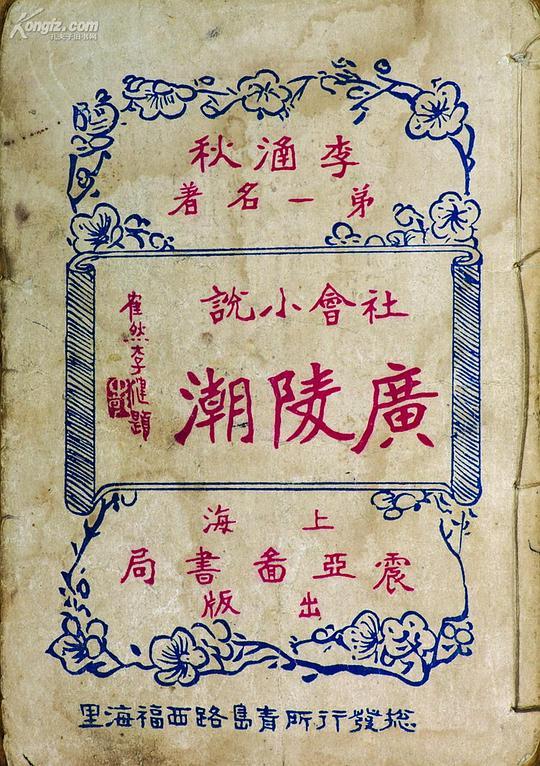 Kongfz.com
孔夫子旧书网
李涵秋
第一名著
社會小說
廣陵潮
崔然李健題
上海
震亞啚書局
出版
總發行所青島路西福海里